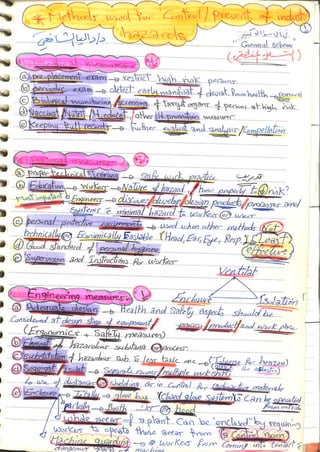 * Methods used for Control / prevent of indust.
hazards
General Scheme
measures
(a) pre-placement exam → restrict high risk persons
(b) periodic exam → detect early manifest. of deviat. from health → removal
(c) Biological monitoring / Screening of target organs of persons at high risk.
(d) Vaccinat / Nutrit / H. educat / other H. promotion measures
(e) Keeping full records → further evaluat and analysis / Compellation
Personal measures
(a) proper technical training → Safe work practice
(b) Education → Worker → Nature of hazard / How properly to risk?
most important is Engineers → discover / develop / design products / processes and
systems & minimal hazard to workers or users
(c) personal protective equipments → used when other methods Not
technically or Economically Feasible (Head, Ear, Eye, Resp.) Least
effective
(d) Good standard of personal hygiene
(e) Supervision and Instructions for worker
Ventilat
Engineering measures:
Enclosure
Isolation
(a) Adequate design → Health and Safety aspects should be
Considered at design stage of equipment / process / product and work place
(Ergonomics & Safety measures)
(b) Elimat of hazardous substance or process
(c) Substitution of hazardous sub. & less toxic one → (Toluene for benzen)
(d) Segregat / Isolat → Separate rooms / multiple work units
to use of distance or shielding as in Control for radioactive materials
(e) Enclosure → Totally → glove box (Closed glove system) Can be operated
from outside
partain → Booth or hood
whole areas of a plant. Can be 'enclosed' by requiring
workers to operate those areas from a Control room
Machine guarding → workers from coming into contact &
dangerous parts of machine